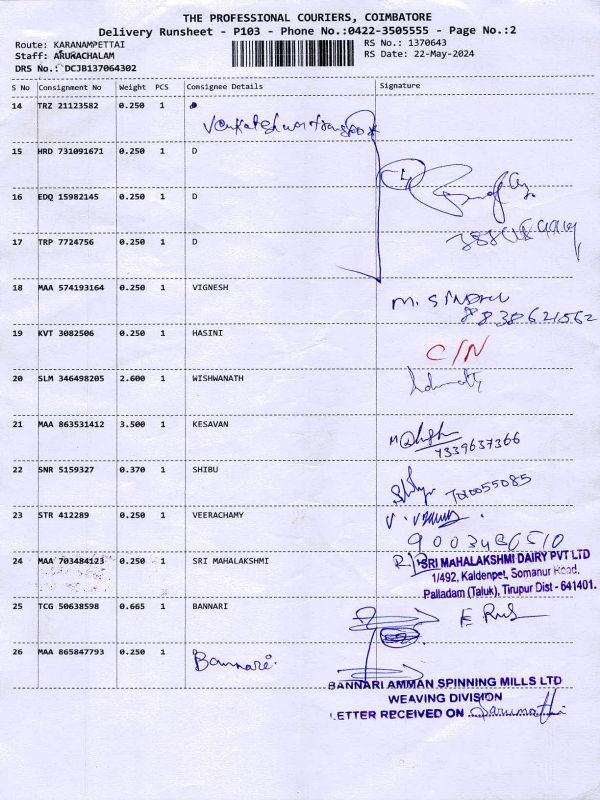 THE PROFESSIONAL COURIERS, COIMBATORE
Delivery Runsheet - P103 - Phone No.:0422-3505555 - Page No.:2
Route: KARANAMPETTAI RS No.: 1370643
Staff: ARUNACHALAM RS Date: 22-May-2024
DRS No.: DCJB137064302
S No Consignment No Weight PCS Consignee Details Signature
14 TRZ 21123582 0.250 1
15 HRD 731091671 0.250 1 D
16 EDQ 15982145 0.250 1 D
17 TRP 7724756 0.250 1 D
18 MAA 574193164 0.250 1 VIGNESH
8838621562
19 KVT 3082506 0.250 1 HASINI C/N
20 SLM 346498205 2.600 1 WISHWANATH
21 MAA 863531412 3.500 1 KESAVAN
7339637366
22 SNR 5159327 0.370 1 SHIBU 7010055085
23 STR 412289 0.250 1 VEERACHAMY
24 MAA 703484123 0.250 1 SRI MAHALAKSHMI
SRI MAHALAKSHMI DAIRY PVT LTD
1/492, Kaldenpet, Somanur Road,
Palladam (Taluk), Tirupur Dist - 641401.
25 TCG 50638598 0.665 1 BANNARI
26 MAA 865847793 0.250 1 D
Bannari
BANNARI AMMAN SPINNING MILLS LTD
WEAVING DIVISION
LETTER RECEIVED ON